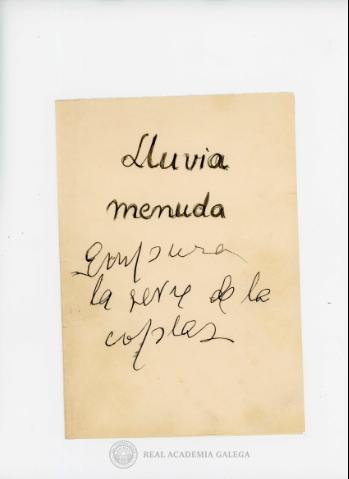 Lluvia
menuda
la serie de la
coplas
REAL ACADEMIA GALEGA